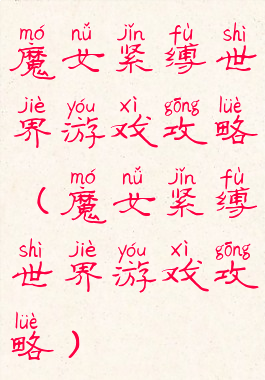 mó nǚ jǐn fù shì
魔女紧缚世
jiè yóu xì gōng lüè
界游戏攻略
mó nǚ jǐn fù
(魔女紧缚
shì jiè yóu xì gōng
世界游戏攻
lüè
略)